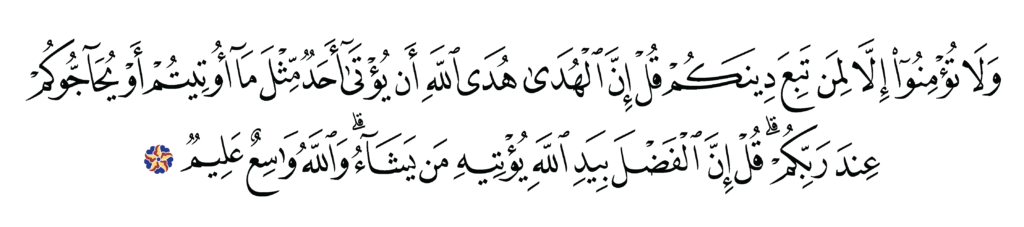 وَلَا تُؤْمِنُوٓا۟ إِلَّا لِمَن تَبِعَ دِينَكُمْ قُلْ إِنَّ ٱلْهُدَىٰ هُدَى ٱللَّهِ أَن يُؤْتَىٰٓ أَحَدٌ مِّثْلَ مَآ أُوتِيتُمْ أَوْ يُحَآجُّوكُمْ
عِندَ رَبِّكُمْ ۗ قُلْ إِنَّ ٱلْفَضْلَ بِيَدِ ٱللَّهِ يُؤْتِيهِ مَن يَشَآءُ ۗ وَٱللَّهُ وَٰسِعٌ عَلِيمٌ